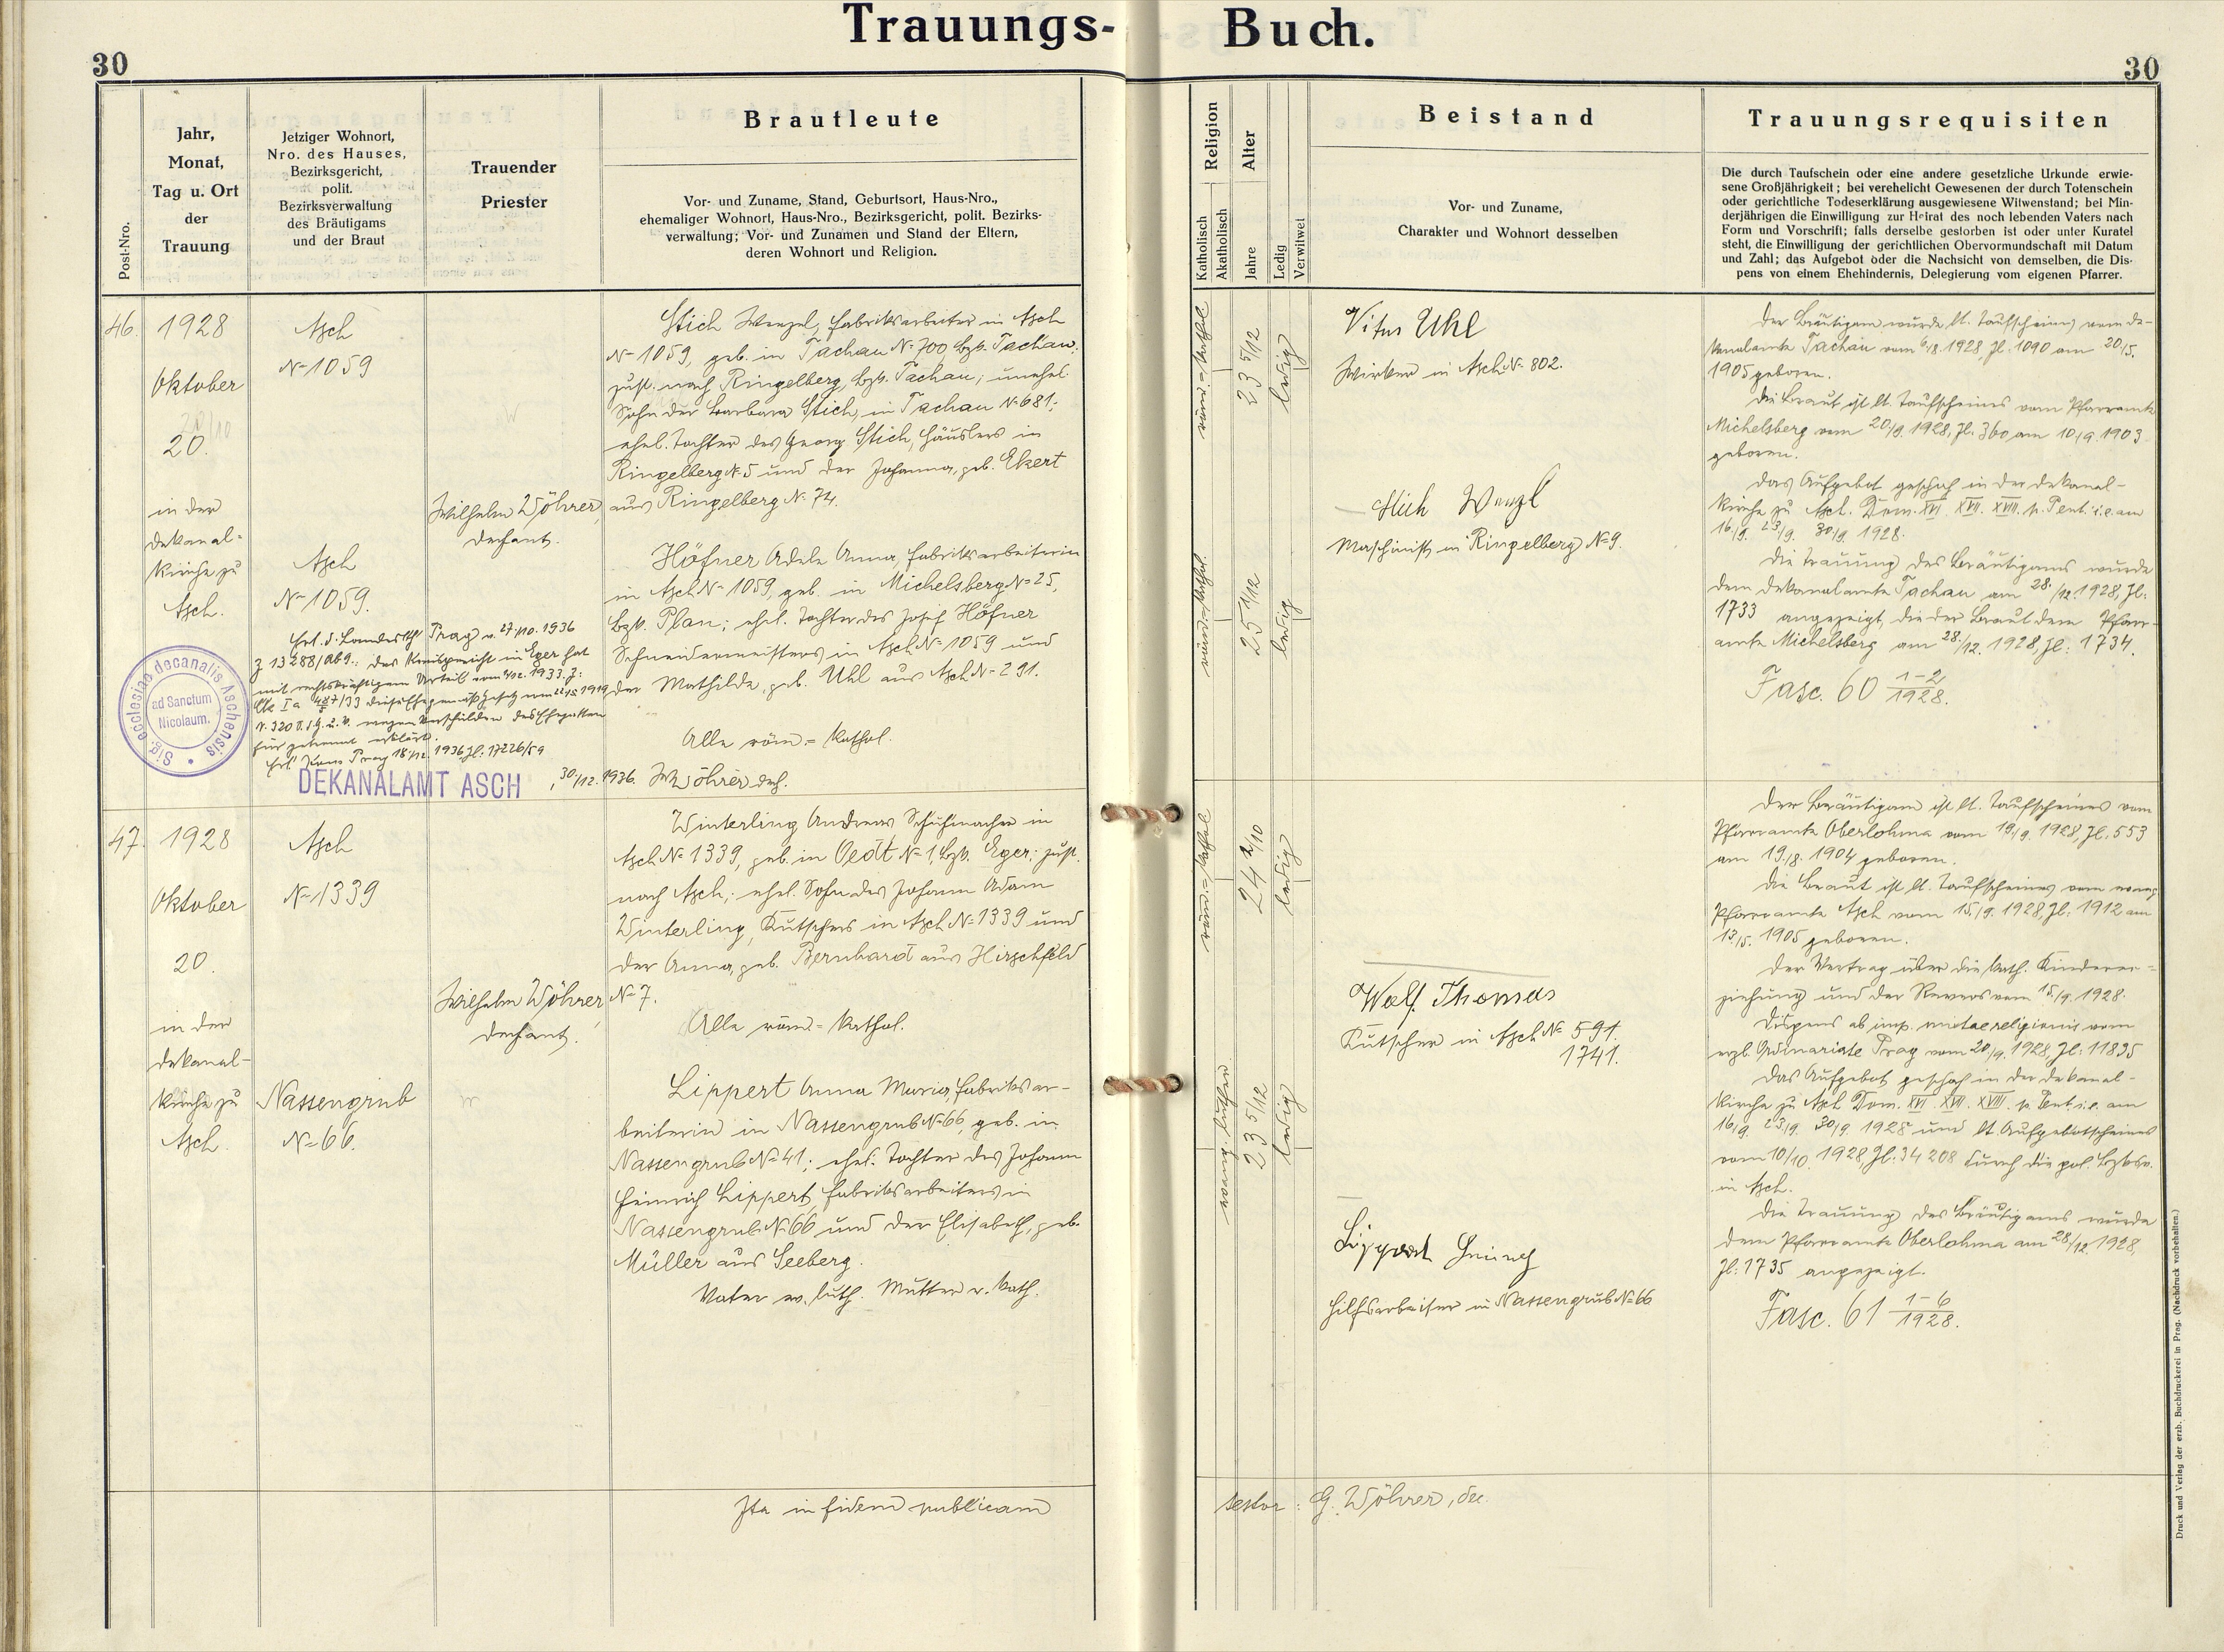 Trauungs- Buch.
30
30
Post-Nro.
Jahr,
Monat,
Tag u. Ort
der
Trauung
Jetziger Wohnort,
Nro. des Hauses,
Bezirksgericht,
polit.
Bezirksverwaltung
des Bräutigams
und der Braut
Trauender
Priester
Brautleute
Vor- und Zuname, Stand, Geburtsort, Haus-Nro.,
ehemaliger Wohnort, Haus-Nro., Bezirksgericht, polit. Bezirks-
verwaltung; Vor- und Zunamen und Stand der Eltern,
deren Wohnort und Religion.
Religion
Katholisch
Akatholisch
Alter
Jahre
Ledig
Verwitwet
Beistand
Vor- und Zuname,
Charakter und Wohnort desselben
Trauungsrequisiten
Die durch Taufschein oder eine andere gesetzliche Urkunde erwie-
sene Großjährigkeit; bei verehelicht Gewesenen der durch Totenschein
oder gerichtliche Todeserklärung ausgewiesene Witwenstand; bei Min-
derjährigen die Einwilligung zur Heirat des noch lebenden Vaters nach
Form und Vorschrift; falls derselbe gestorben ist oder unter Kuratel
steht, die Einwilligung der gerichtlichen Obervormundschaft mit Datum
und Zahl; das Aufgebot oder die Nachsicht von demselben, die Dis-
pens von einem Ehehindernis, Delegierung vom eigenen Pfarrer.
46.
1928
Oktober
20/10
20.
in der
Dekanal-
kirche zu
Asch.
Asch
N= 1059
Asch
N= 1059.
Wilhelm Wöhrer,
Dechant.
Stich Wenzel, Fabriksarbeiter in Asch
N= 1059, geb. in Tachau N= 700, Bzk. Tachau;
zust. nach Ringelberg, Bzk. Tachau; unehel.
Sohn der Barbara Stich, in Tachau N= 681;
ehel. Tochter des Georg Stich, Häuslers in
Ringelberg N= 5 und der Johanna, geb. Ekert
aus Ringelberg N= 74.
Höfner Adele Anna, Fabriksarbeiterin
in Asch N= 1059, geb. in Michelsberg N= 25,
Bzk. Plan; ehel. Tochter des Josef Höfner
Schneidermeisters in Asch N= 1059 und
der Mathilde, geb. Uhl aus Asch N= 291.
Alle röm.= kathol.
Prag v. 27./10. 1936
Z 13288/ab9.: das Kreisgericht in Eger hat
mit rechtskräftigem Urteil vom 1933. Z:
Ck Ia 487/33 diese Ehe gemäß Gesetz vom 22/5 1919
N. 320 wegen Verschulden des Ehegatten
für getrennt erklärt.
Prag 18/12. 1936 Zl: 17226/59
DEKANALAMT ASCH , 30./12. 1936. W. Wöhrer Dech.
Sig. ecclesiae decanalis Aschensis
ad Sanctum
Nicolaum.
röm.=kathol
23 5/12
ledig
röm.=kathol.
25 1/12
ledig
Vitus Uhl
Wirker in Asch N= 802.
Stich Wenzl
Maschinist in Ringelberg N= 9.
Der Bräutigam wurde lt. Taufscheines vom De-
kanalamte Tachau vom 6/8. 1928, Zl: 1090 am 20/5.
1905 geboren.
Die Braut ist lt. Taufscheines vom Pfarramte
Michelsberg vom 20/9. 1928, Zl: 360 am 10/9. 1903
geboren.
Das Aufgebot geschah in der Dekanal-
kirche zu Asch. Dom. XVI. XVII. XVIII. p. Pent. i.e. am
16/9. 23/9. 30/9. 1928.
Die Trauung des Bräutigams wurde
dem Dekanalamte Tachau am 28./12. 1928, Zl:
1733 angezeigt, die der Braut dem Pfarr-
amte Michelsberg am 28./12. 1928, Zl: 1734.
Fasc. 60 1-2/1928.
47.
1928
Oktober
20.
in der
Dekanal-
kirche zu
Asch.
Asch
N= 1339
Nassengrub
N= 66.
Wilhelm Wöhrer,
Dechant.
Winterling Andreas Schuhmacher in
Asch N= 1339, geb. in Oedt N= 1, Bzk. Eger; zust.
nach Asch; ehel. Sohn des Johann Adam
Winterling, Kutschers in Asch N= 1339 und
der Anna, geb. Bernhard aus Hirschfeld
N= 7.
Alle röm.= kathol.
Lippert Anna Maria, Fabriksar-
beiterin in Nassengrub N= 66, geb. in
Nassengrub N= 41; ehel. Tochter des Johann
Heinrich Lippert, Fabriksarbeiters in
Nassengrub N= 66 und der Elisabeth, geb.
Müller aus Seeberg.
Vater ev. luth. Mutter r. kath.
röm.=kathol
24 2/10
ledig
evang. luther.
23 5/12
ledig
Wolf Thomas
Kutscher in Asch N= 591.
1741.
Lippert Heinrich
Hilfsarbeiter in Nassengrub N= 66
Der Bräutigam ist lt. Taufscheines vom
Pfarramte Oberlohma vom 19/9. 1928, Zl: 553
am 19./8. 1904 geboren.
Die Braut ist lt. Taufscheines vom evang.
Pfarramte Asch vom 15./9. 1928, Zl: 1912 am
13/5. 1905 geboren.
Der Vertrag über die kath. Kinderer-
ziehung und der Revers vom 15./9. 1928.
Dispens ab imp. mixtae religionis vom
erzb. Ordinariate Prag vom 20/9. 1928, Zl: 11835
Das Aufgebot geschah in der Dekanal-
kirche zu Asch Dom. XVI. XVII. XVIII. p. Pent. i.e. am
16/9. 23/9. 30/9 1928 und lt. Aufgebotscheines
vom 10/10. 1928, Zl: 34208 durch die pol. Bzksv.
in Asch.
Die Trauung des Bräutigams wurde
dem Pfarramte Oberlohma am 28./12. 1928,
Zl: 1735 angezeigt.
Fasc. 61 1-6/1928.
Ita in fidem publicam testor: G. Wöhrer, dec.
Druck und Verlag der erzb. Buchdruckerei in Prag. (Nachdruck vorbehalten.)